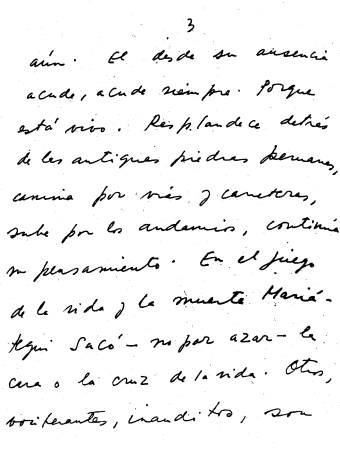 3
aún. El desde su ausencia
acude, acude siempre. Porque
está vivo. Resplandece detrás
de las antiguas piedras peruanas,
camina por vías y carreteras,
sube por los andamios, continúa
su pensamiento. En el juego
de la vida y la muerte Mariá-
tegui sacó - no por azar - la
cara o la cruz de la vida. Otros,
vociferantes, inauditos, son